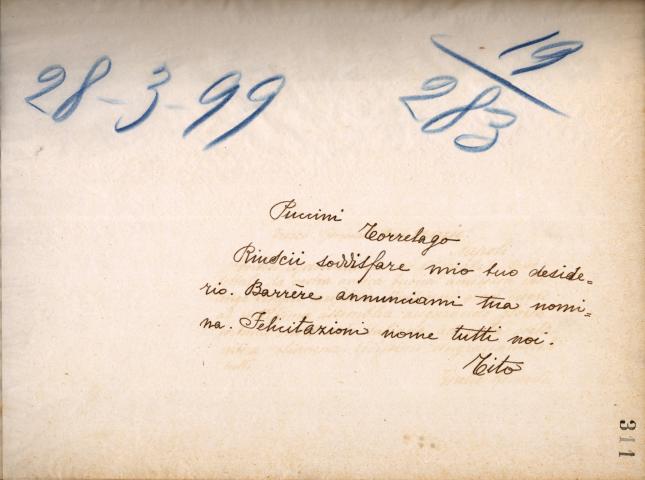 28-3-99
19
283
Puccini
Torrelago
Riuscii soddisfare mio tuo deside=
rio. Barrère annunciami tua nomi=
na. Felicitazioni nome tutti noi.
Tito
311